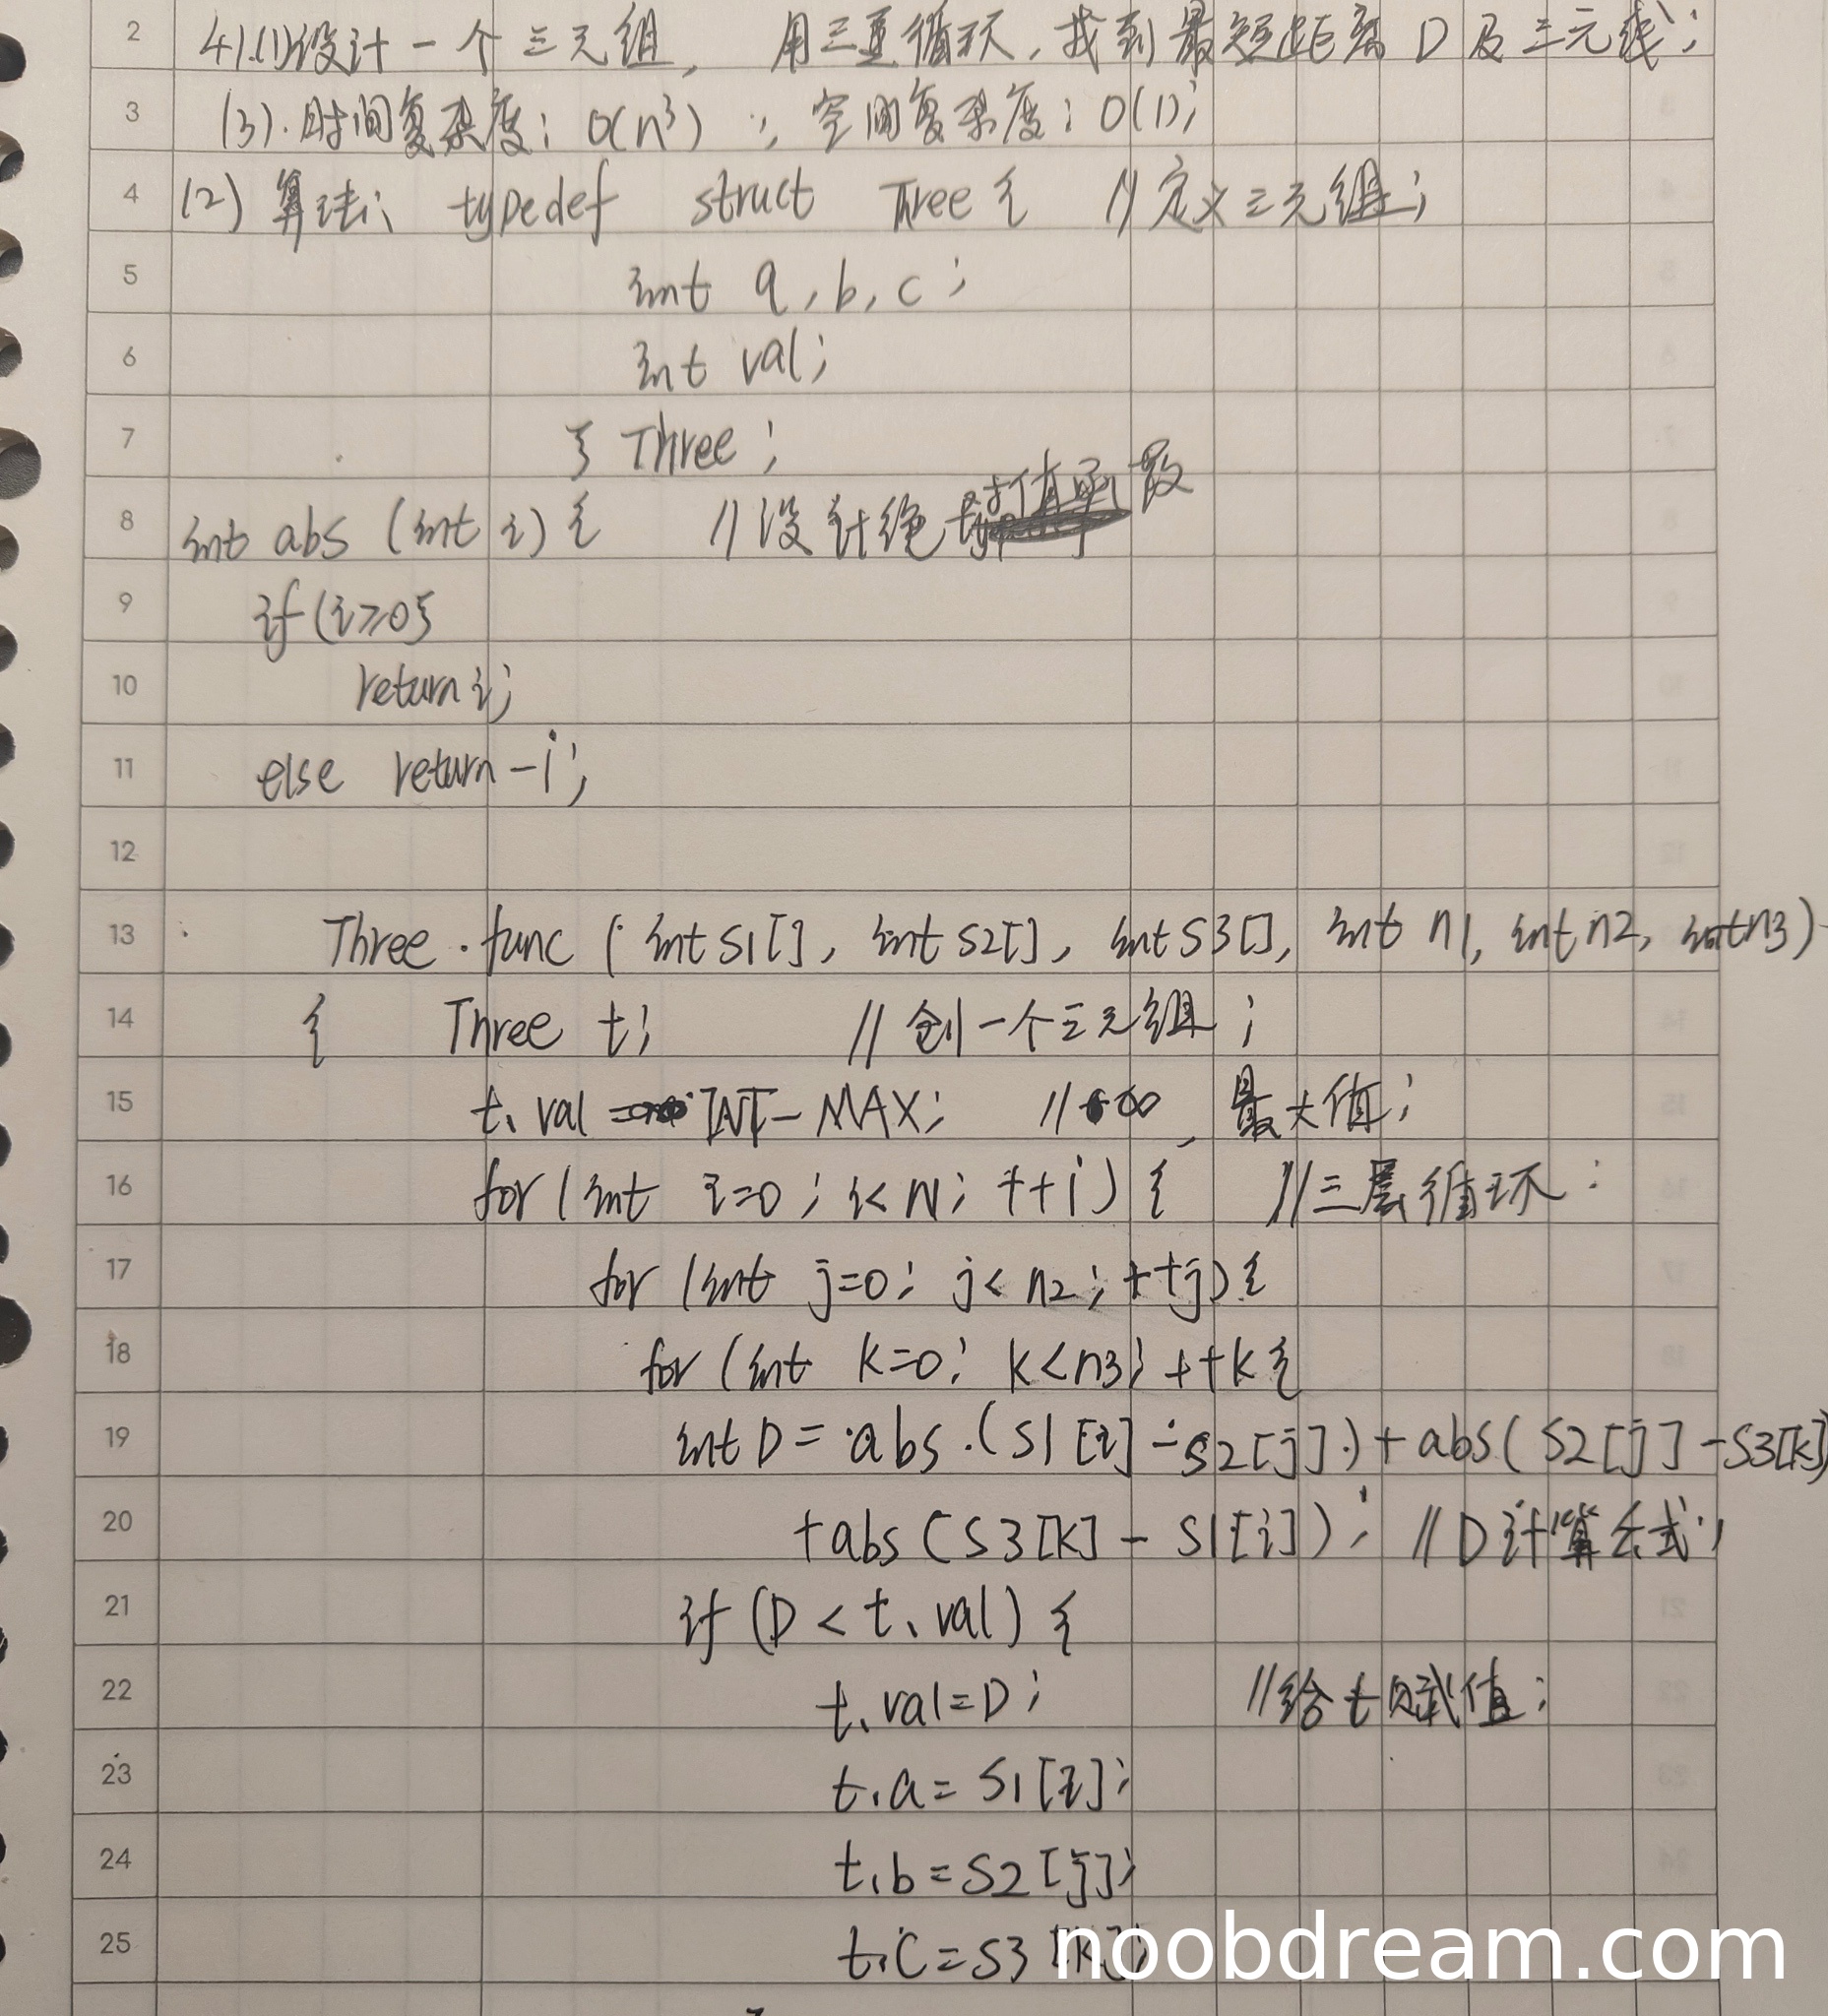 41.(1)设计一个三元组, 用三重循环,找到最短距离D及三元组;
(3).时间复杂度:O(n³);空间复杂度:O(1);
(2)算法: typedef struct Three { //定义三元组;
int a,b,c;
int val;
} Three;
int abs (int i) { //设计绝对值函数
if (i≥0)
return i;
else return -i;
Three func (int S1[], int S2[], int S3[], int n1, int n2, int n3)
{ Three t; //创一个三元组;
t.val = INT-MAX; //∞,最大值;
for (int i=0; i<n1; ++i) { //三层循环:
for (int j=0; j<n2; ++j) {
for (int k=0; k<n3; ++k {
int D = abs(S1[i]-S2[j])+abs(S2[j]-S3[k])
+abs(S3[k]-S1[i]); //D计算公式;
if (D<t.val) {
t.val=D; //给t赋值;
t.a=S1[i];
t.b=S2[j];
t.c=S3[k];
noobdream.com
2
3
4
5
6
7
8
9
10
11
12
13
14
15
16
17
18
19
20
21
22
23
24
25